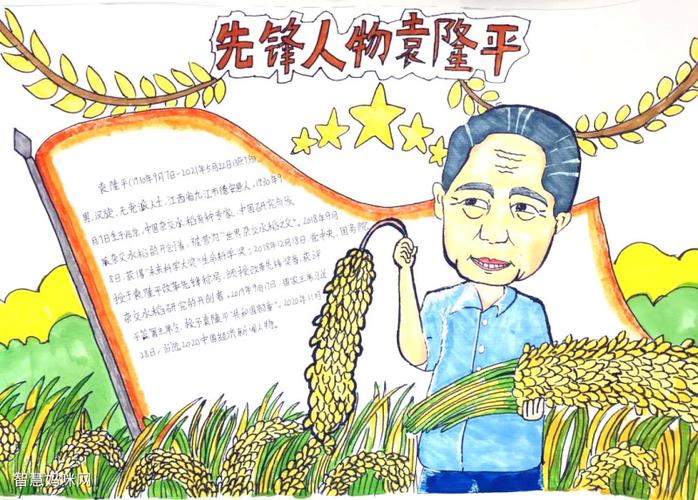 先锋人物袁隆平
袁隆平(1930年9月7日-2021年5月22日)
男,汉族,无党派人士,江西省九江市德安县人,1930年9
月7日生于北京,中国杂交水稻育种专家,中国研究与发
展杂交水稻的开创者,被誉为"世界杂交水稻之父"。2018年9月
8日,获得"未来科学大奖"生命科学奖;2018年12月18日,党中央、国务院
授予袁隆平改革先锋称号,颁授改革先锋奖章,获评
杂交水稻研究的开创者。2019年9月17日,国家主席习近
平签署主席令,授予袁隆平"共和国勋章"。2020年11月
28日,当选2020中国经济新闻人物。
智慧妈咪网